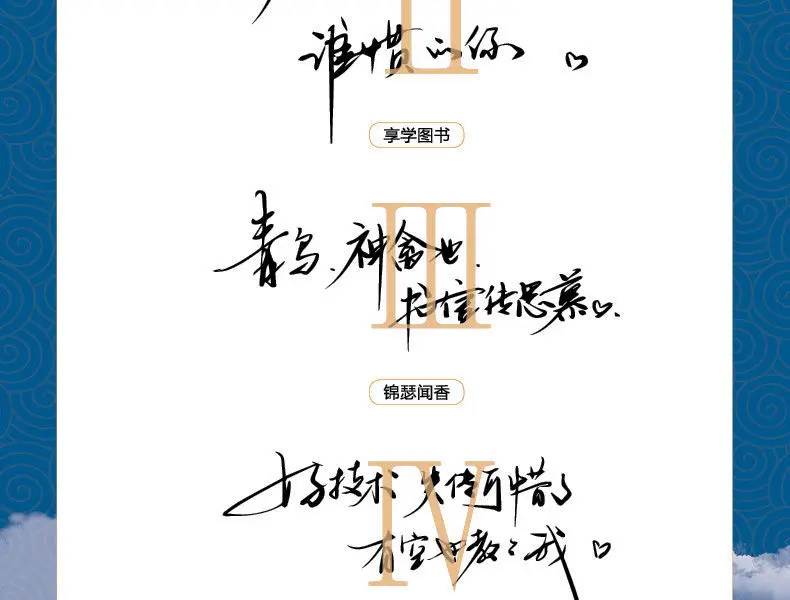 谁惯的你
II
享学图书
III
青鸟,神禽也,
书信传思慕
锦瑟闻香
IV
好技术 失传可惜了
有空 教々我